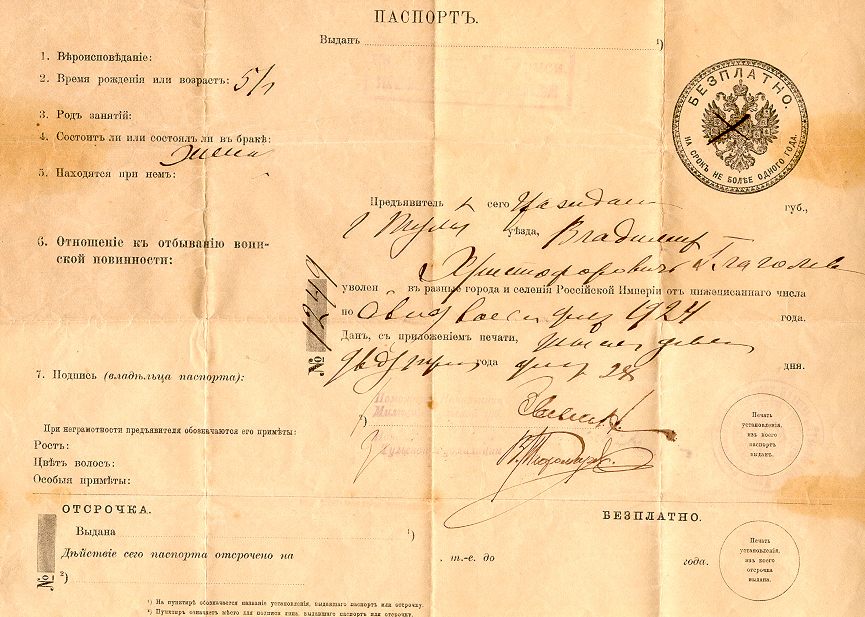 ПАСПОРТЪ.
Выданъ ¹)
1. Вѣроисповѣданіе:
2. Время рожденія или возрастъ: 51
БЕЗПЛАТНО.
НА СРОКЪ НЕ БОЛѢЕ ОДНОГО ГОДА.
3. Родъ занятій:
4. Состоитъ ли или состоялъ ли въ бракѣ:
жена
5. Находятся при немъ:
Предъявитель сего гражданин губ.,
г Тулы уѣзда, Владимир
6. Отношеніе къ отбыванію воин-
ской повинности:
Христофорович Глаголев
уволен въ разные города и селенія Россійской Имперіи отъ нижеписаннаго числа
по 1924 года.
№ 1249
Данъ, съ приложеніемъ печати,
года 28 дня.
7. Подпись (владѣльца паспорта):
²)
При неграмотности предъявителя обозначаются его примѣты:
Ростъ:
Цвѣтъ волосъ:
Особыя примѣты:
Печать
установленія,
изъ коего
паспортъ
выданъ.
ОТСРОЧКА.
БЕЗПЛАТНО.
Выдана ¹)
Дѣйствіе сего паспорта отсрочено на . т.-е. до года.
№ ²)
Печать
установленія,
изъ коего
отсрочка
выдана.
¹) На пунктирѣ обозначается названіе установленія, выдавшаго паспортъ или отсрочку.
²) Пунктиръ означаетъ мѣсто для подписи лица, выдавшаго паспортъ или отсрочку.